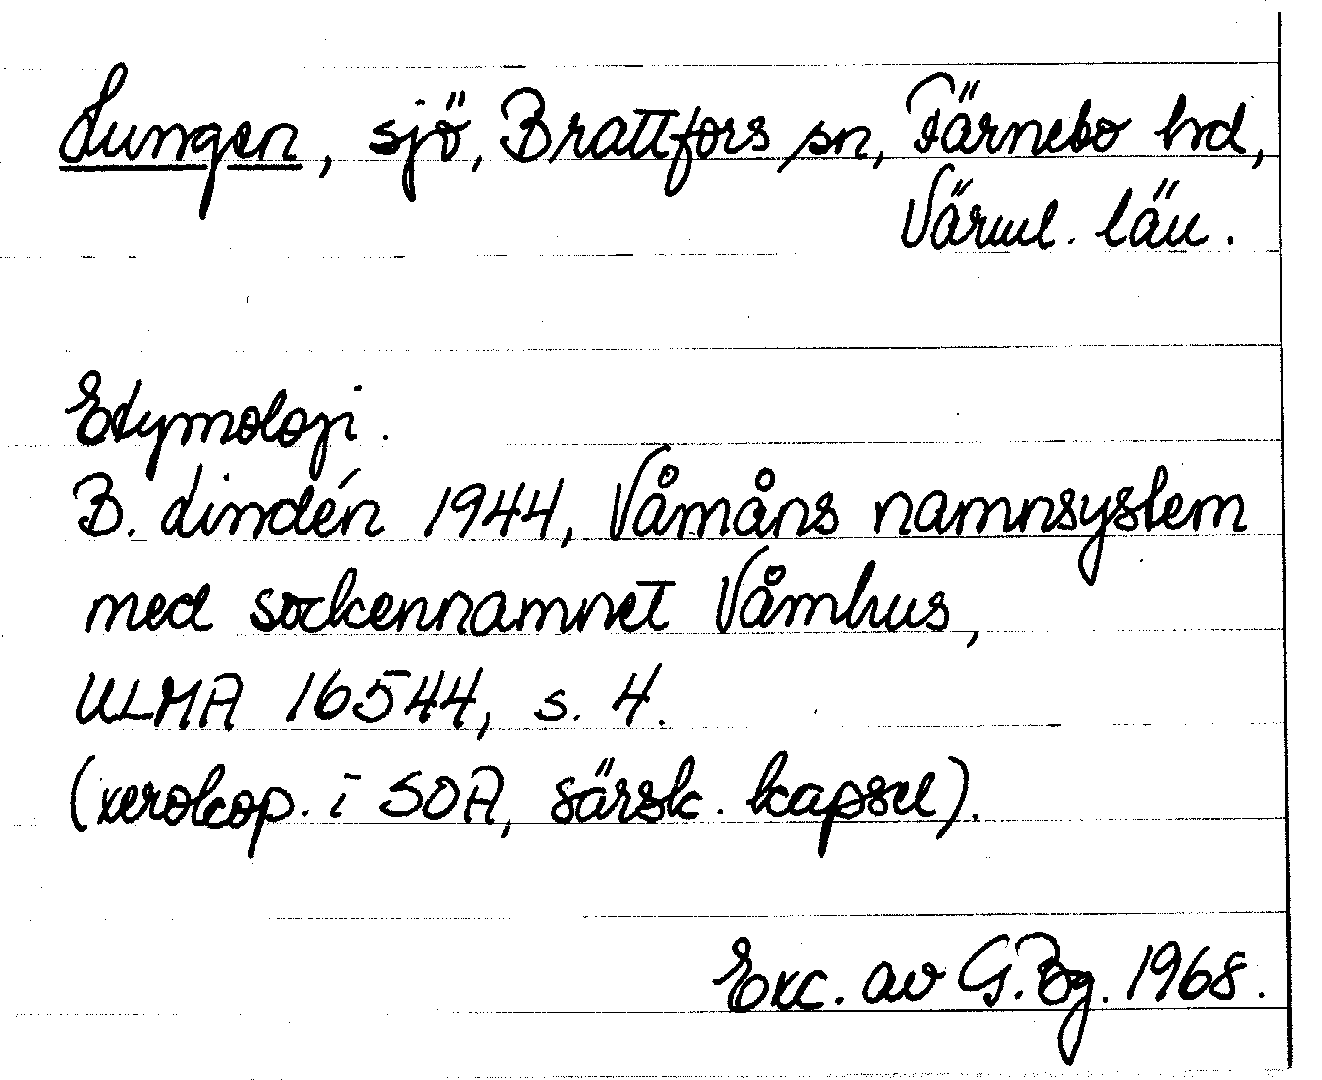 Lungen, sjö, Brattfors sn, Färnebo hd,
Värml. län.
Etymologi.
B. Lindén 1944, Våmåns namnsystem
med sockennamnet Våmhus,
ULMA 16544, s. 4.
(xerokop. i SOA, särsk. kapsel).
Exc. av G. Bg. 1968.